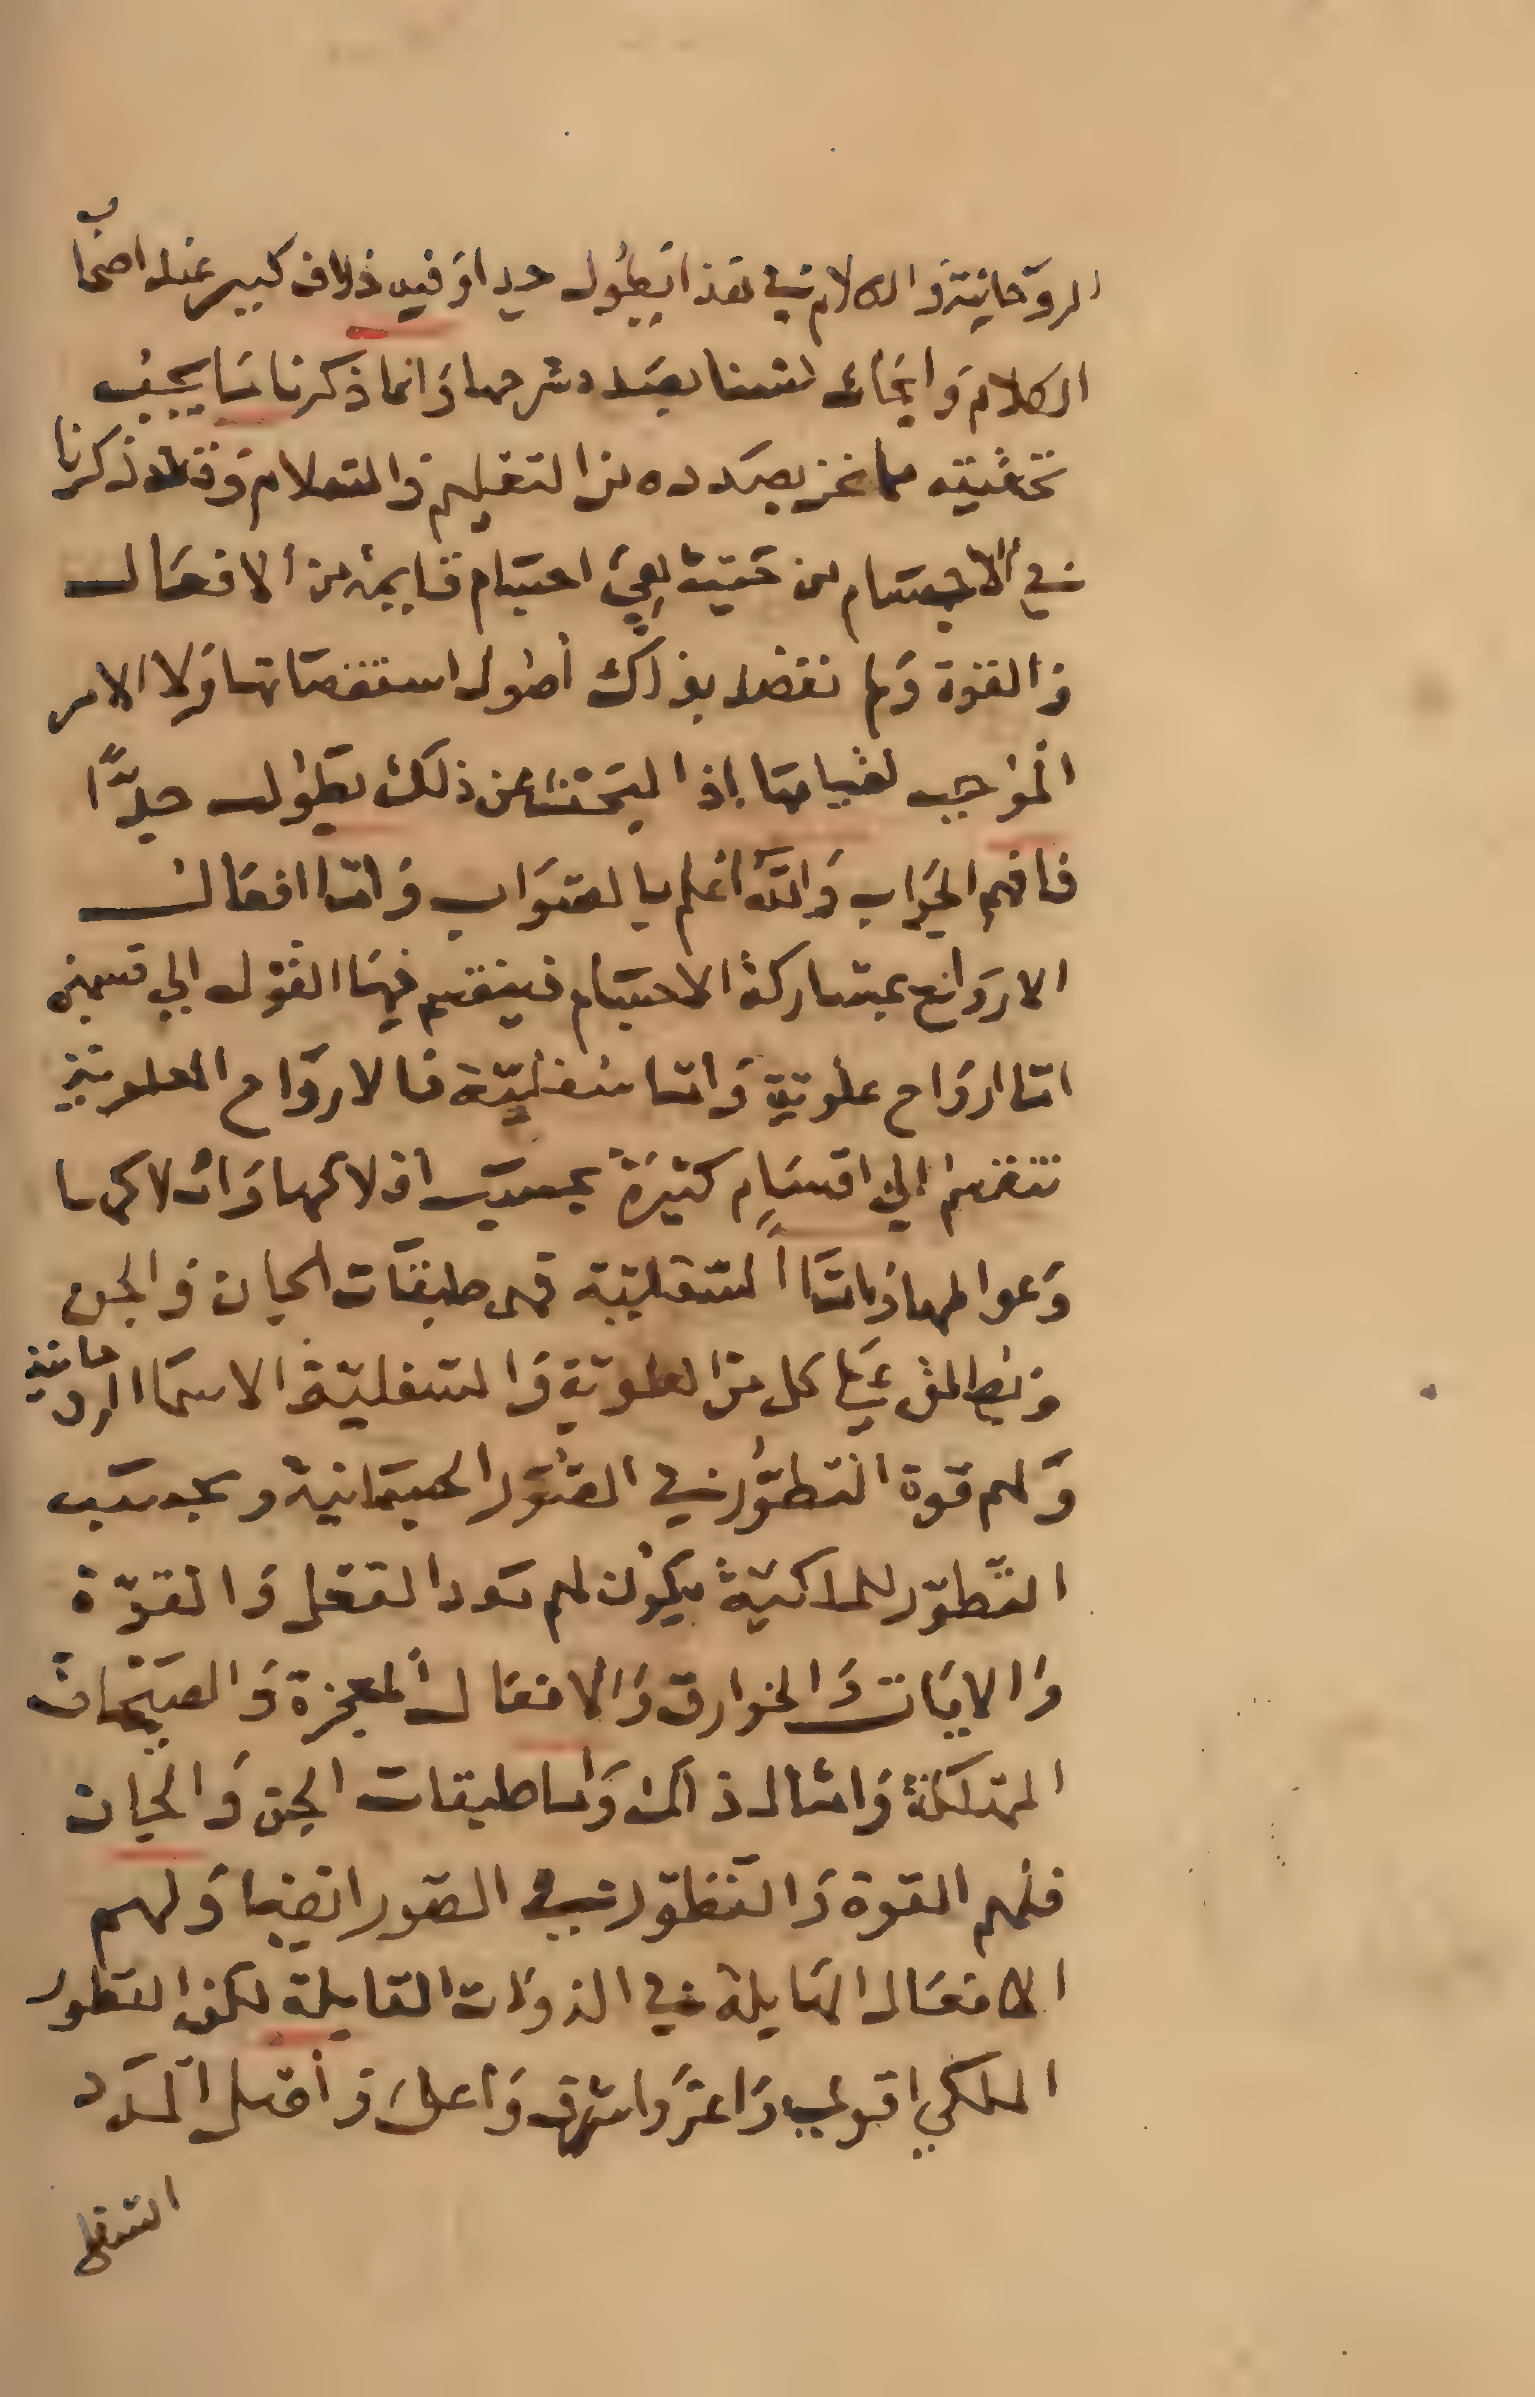 الروحانية والكلام في هذا يطول جدا وفيه خلاف كبير عند اصحاب
الكلام وابحاث لسنا بصدد شرحها وانما ذكرنا ما يجب
تحقيقه مما نحن بصدده من التعليم والتعلام وقد ذكرنا
في الاجسام من حيث هي اجسام قايمة من الافعال
والقوة ولم نقصد بذاك أطول استقصاتها ولا الامر
الموجب لقيامها إذا ليحثنا عن ذلك يطول جدًّا
فافهم الجواب والله أعلم بالصواب واما افعال
الارواح بمشاركة الاجسام فينقسم فيها القول الي قسمين
اما ارواح علوية واما سفليّة فالارواح العلوية
تنقسم الي اقسام كثيرة بحسب افلاكها واملاكها
وعوالمها واما السفلية فهي طبقات الجان والجن
ويطلق علي كل من العلوية والسفلية الاسما الروحانية
ولهم قوة التطور في الصور الجسمانية وبحسب
التطور للملاكية يكون لهم مدد الفعل والقوة
والايات والخوارق والافعال المعجزة والصيحات
المهلكة وامثال ذالك واما طبقات الجن والجان
فلهم القوة والتطور في الصور ايضا ولهم
الافعال الهايلة في الذوات القابلة لكن التطور
الملكي اقوي واعز واشرف واعلا وأفضل المدد
السفلي